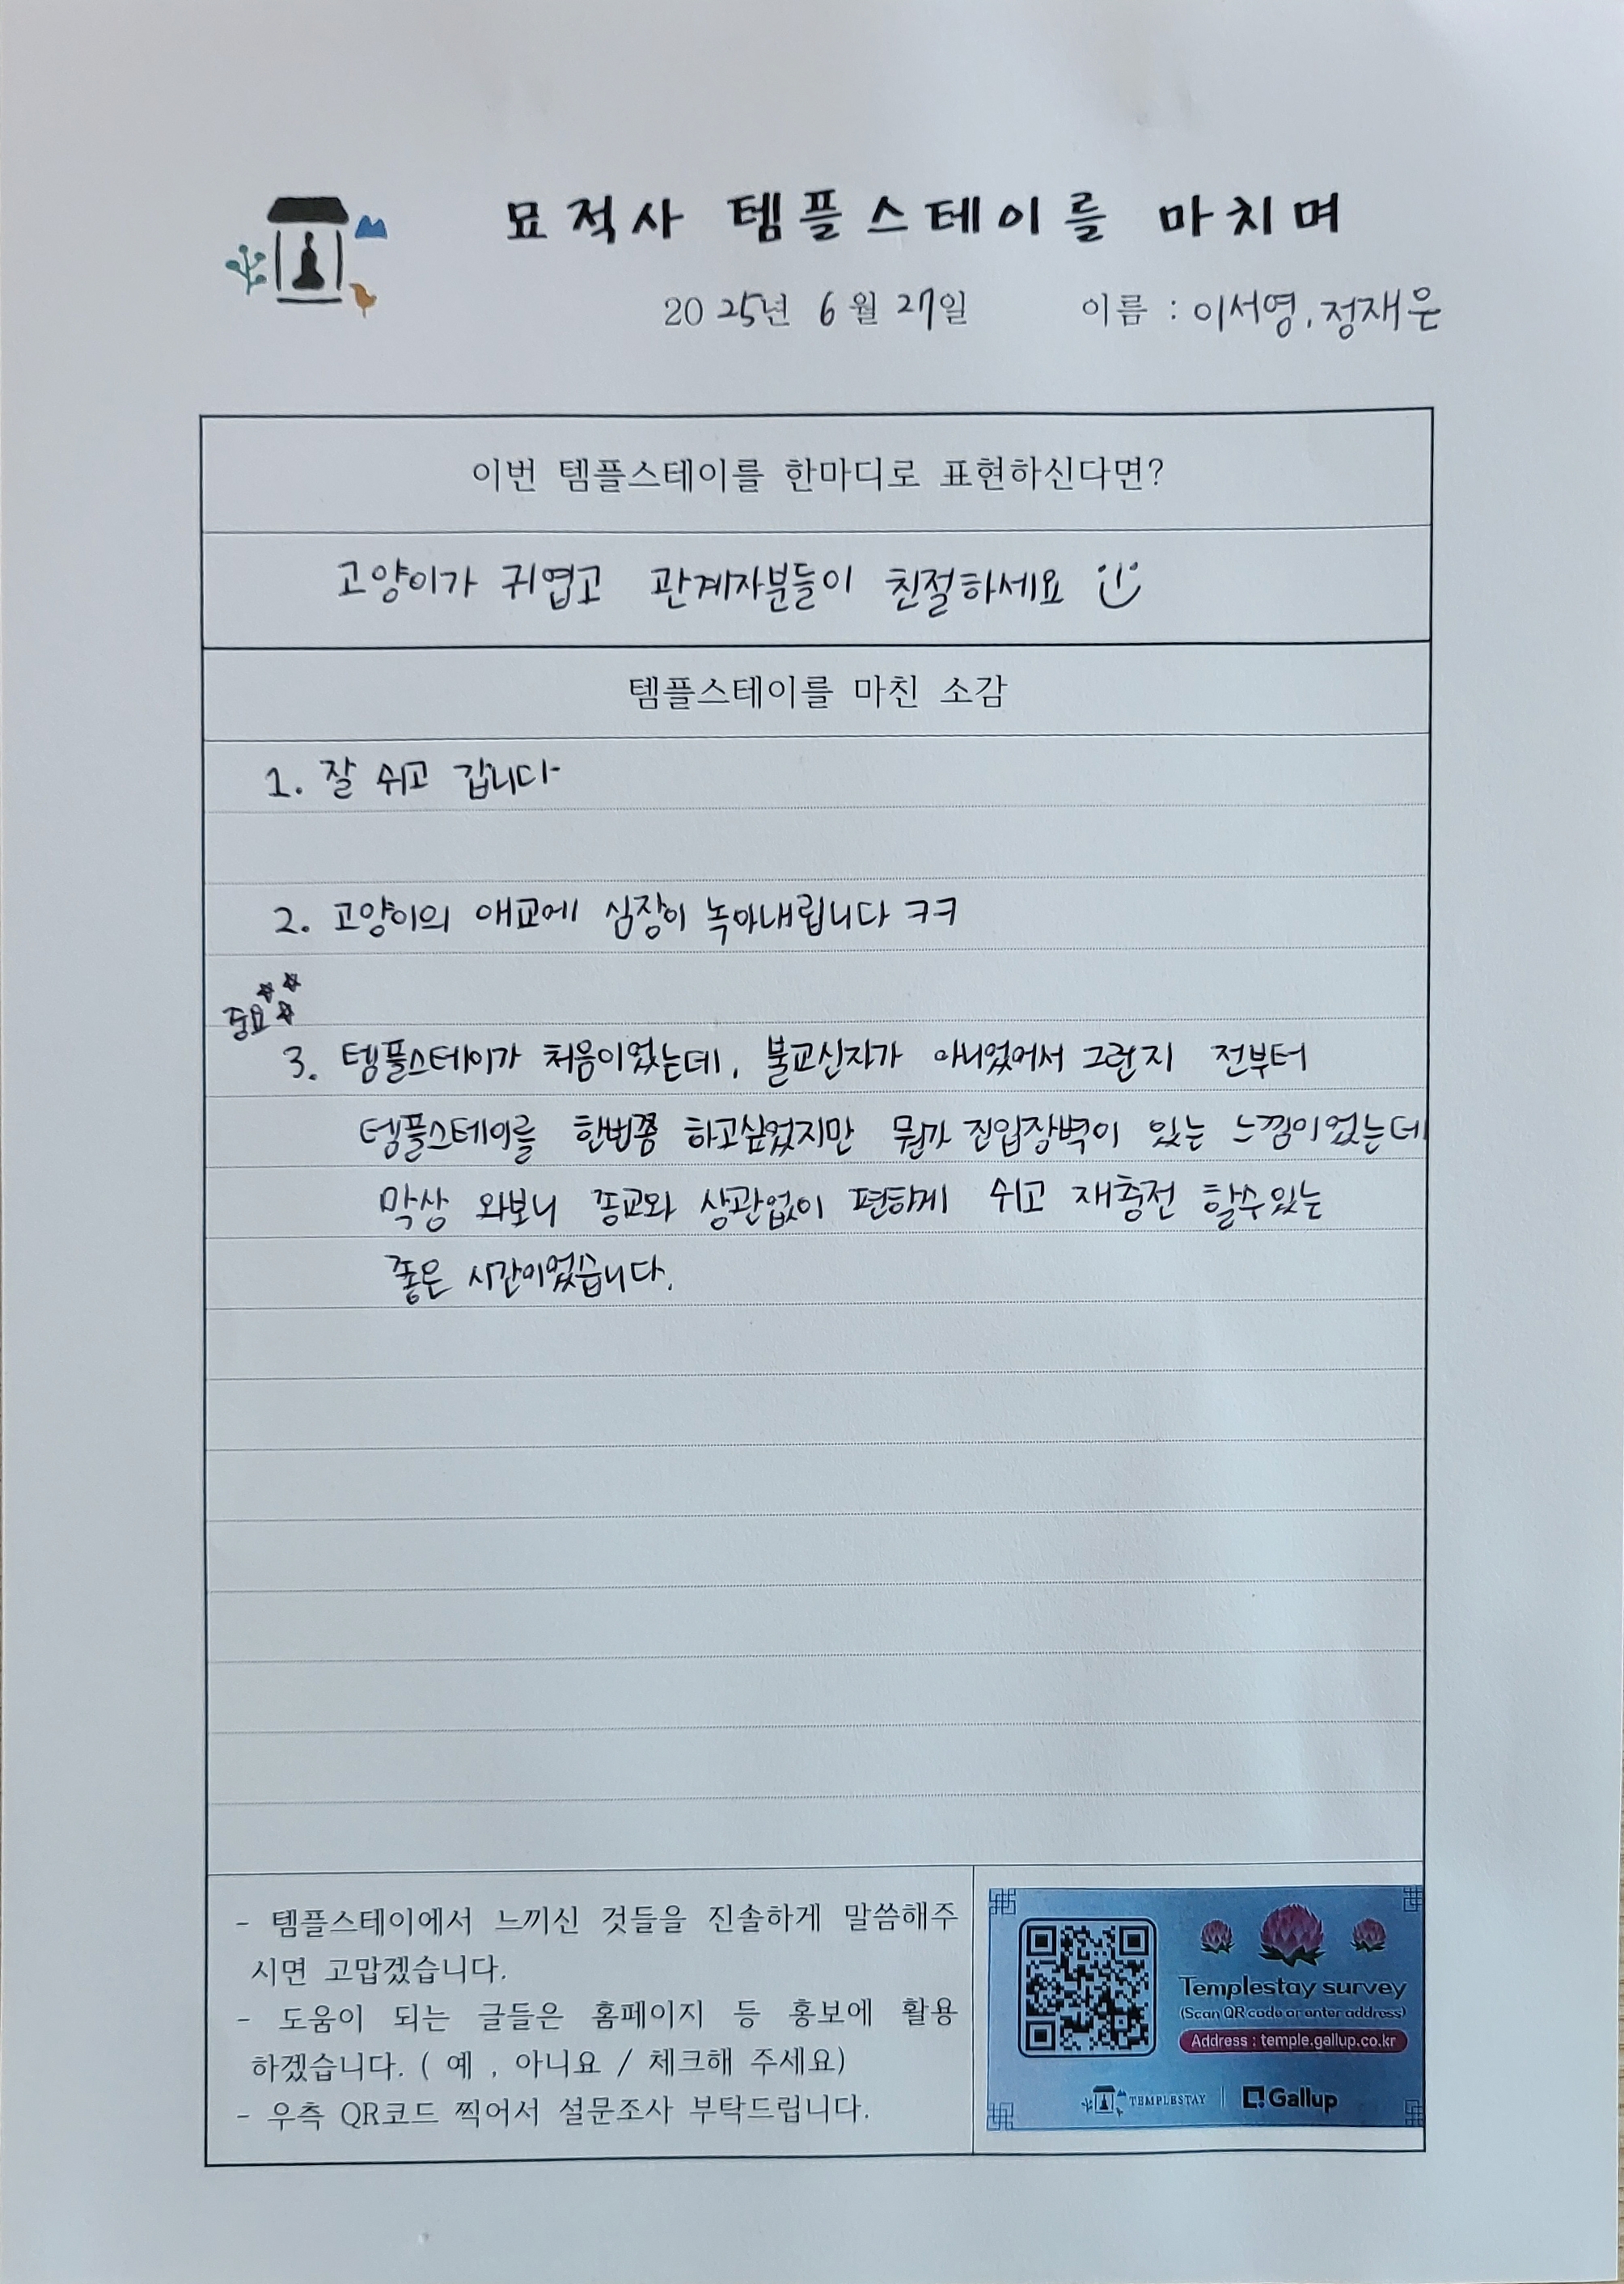 묘적사 템플스테이를 마치며
2025년 6월 27일 이름 : 이서영, 정재은
이번 템플스테이를 한마디로 표현하신다면?
고양이가 귀엽고 관계자분들이 친절하세요
템플스테이를 마친 소감
1. 잘 쉬고 갑니다
2. 고양이의 애교에 심장이 녹아내립니다 ㅋㅋ
중요
3. 템플스테이가 처음이었는데, 불교신자가 아니었어서 그런지 전부터
템플스테이를 한번쯤 하고싶었지만 뭔가 진입장벽이 있는 느낌이었는데
막상 와보니 종교와 상관없이 편하게 쉬고 재충전 할수있는
좋은 시간이었습니다.
- 템플스테이에서 느끼신 것들을 진솔하게 말씀해주
시면 고맙겠습니다.
- 도움이 되는 글들은 홈페이지 등 홍보에 활용
하겠습니다. ( 예 , 아니요 / 체크해 주세요)
- 우측 QR코드 찍어서 설문조사 부탁드립니다.
Templestay survey
(Scan QR code or enter address)
Address : temple.gallup.co.kr
TEMPLESTAY | Gallup